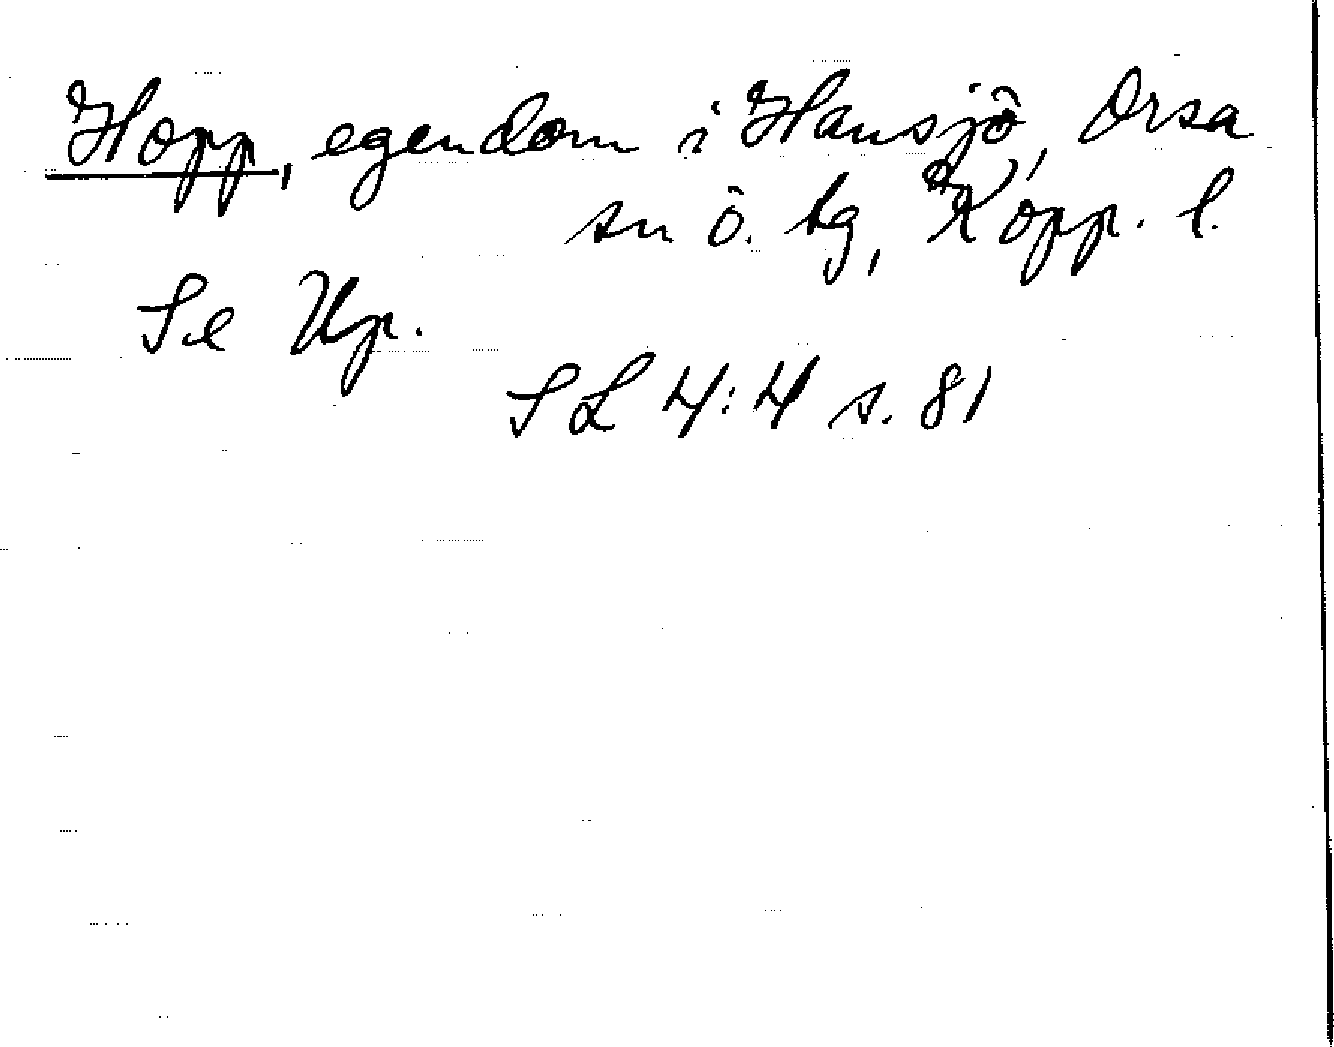 Hopp, egendom i Hansjö, Orsa
sn ö. tg, Kopp. l.
Se Up.
SL 4:4 s. 81